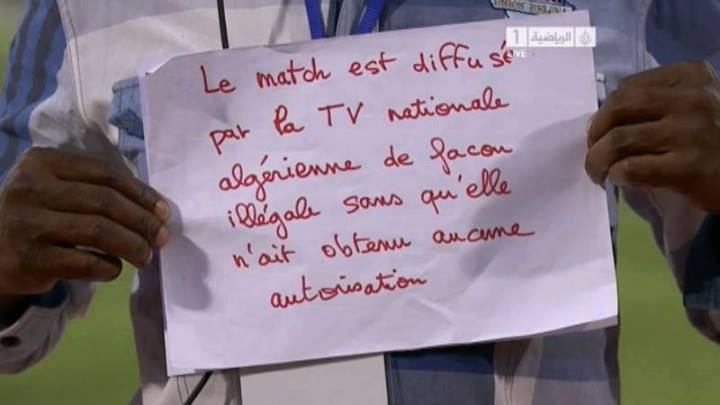 1 الرياضية
LIVE
Le match est diffusé
par la TV nationale
algérienne de facon
illégale sans qu'elle
n'ait obtenu aucune
autorisation